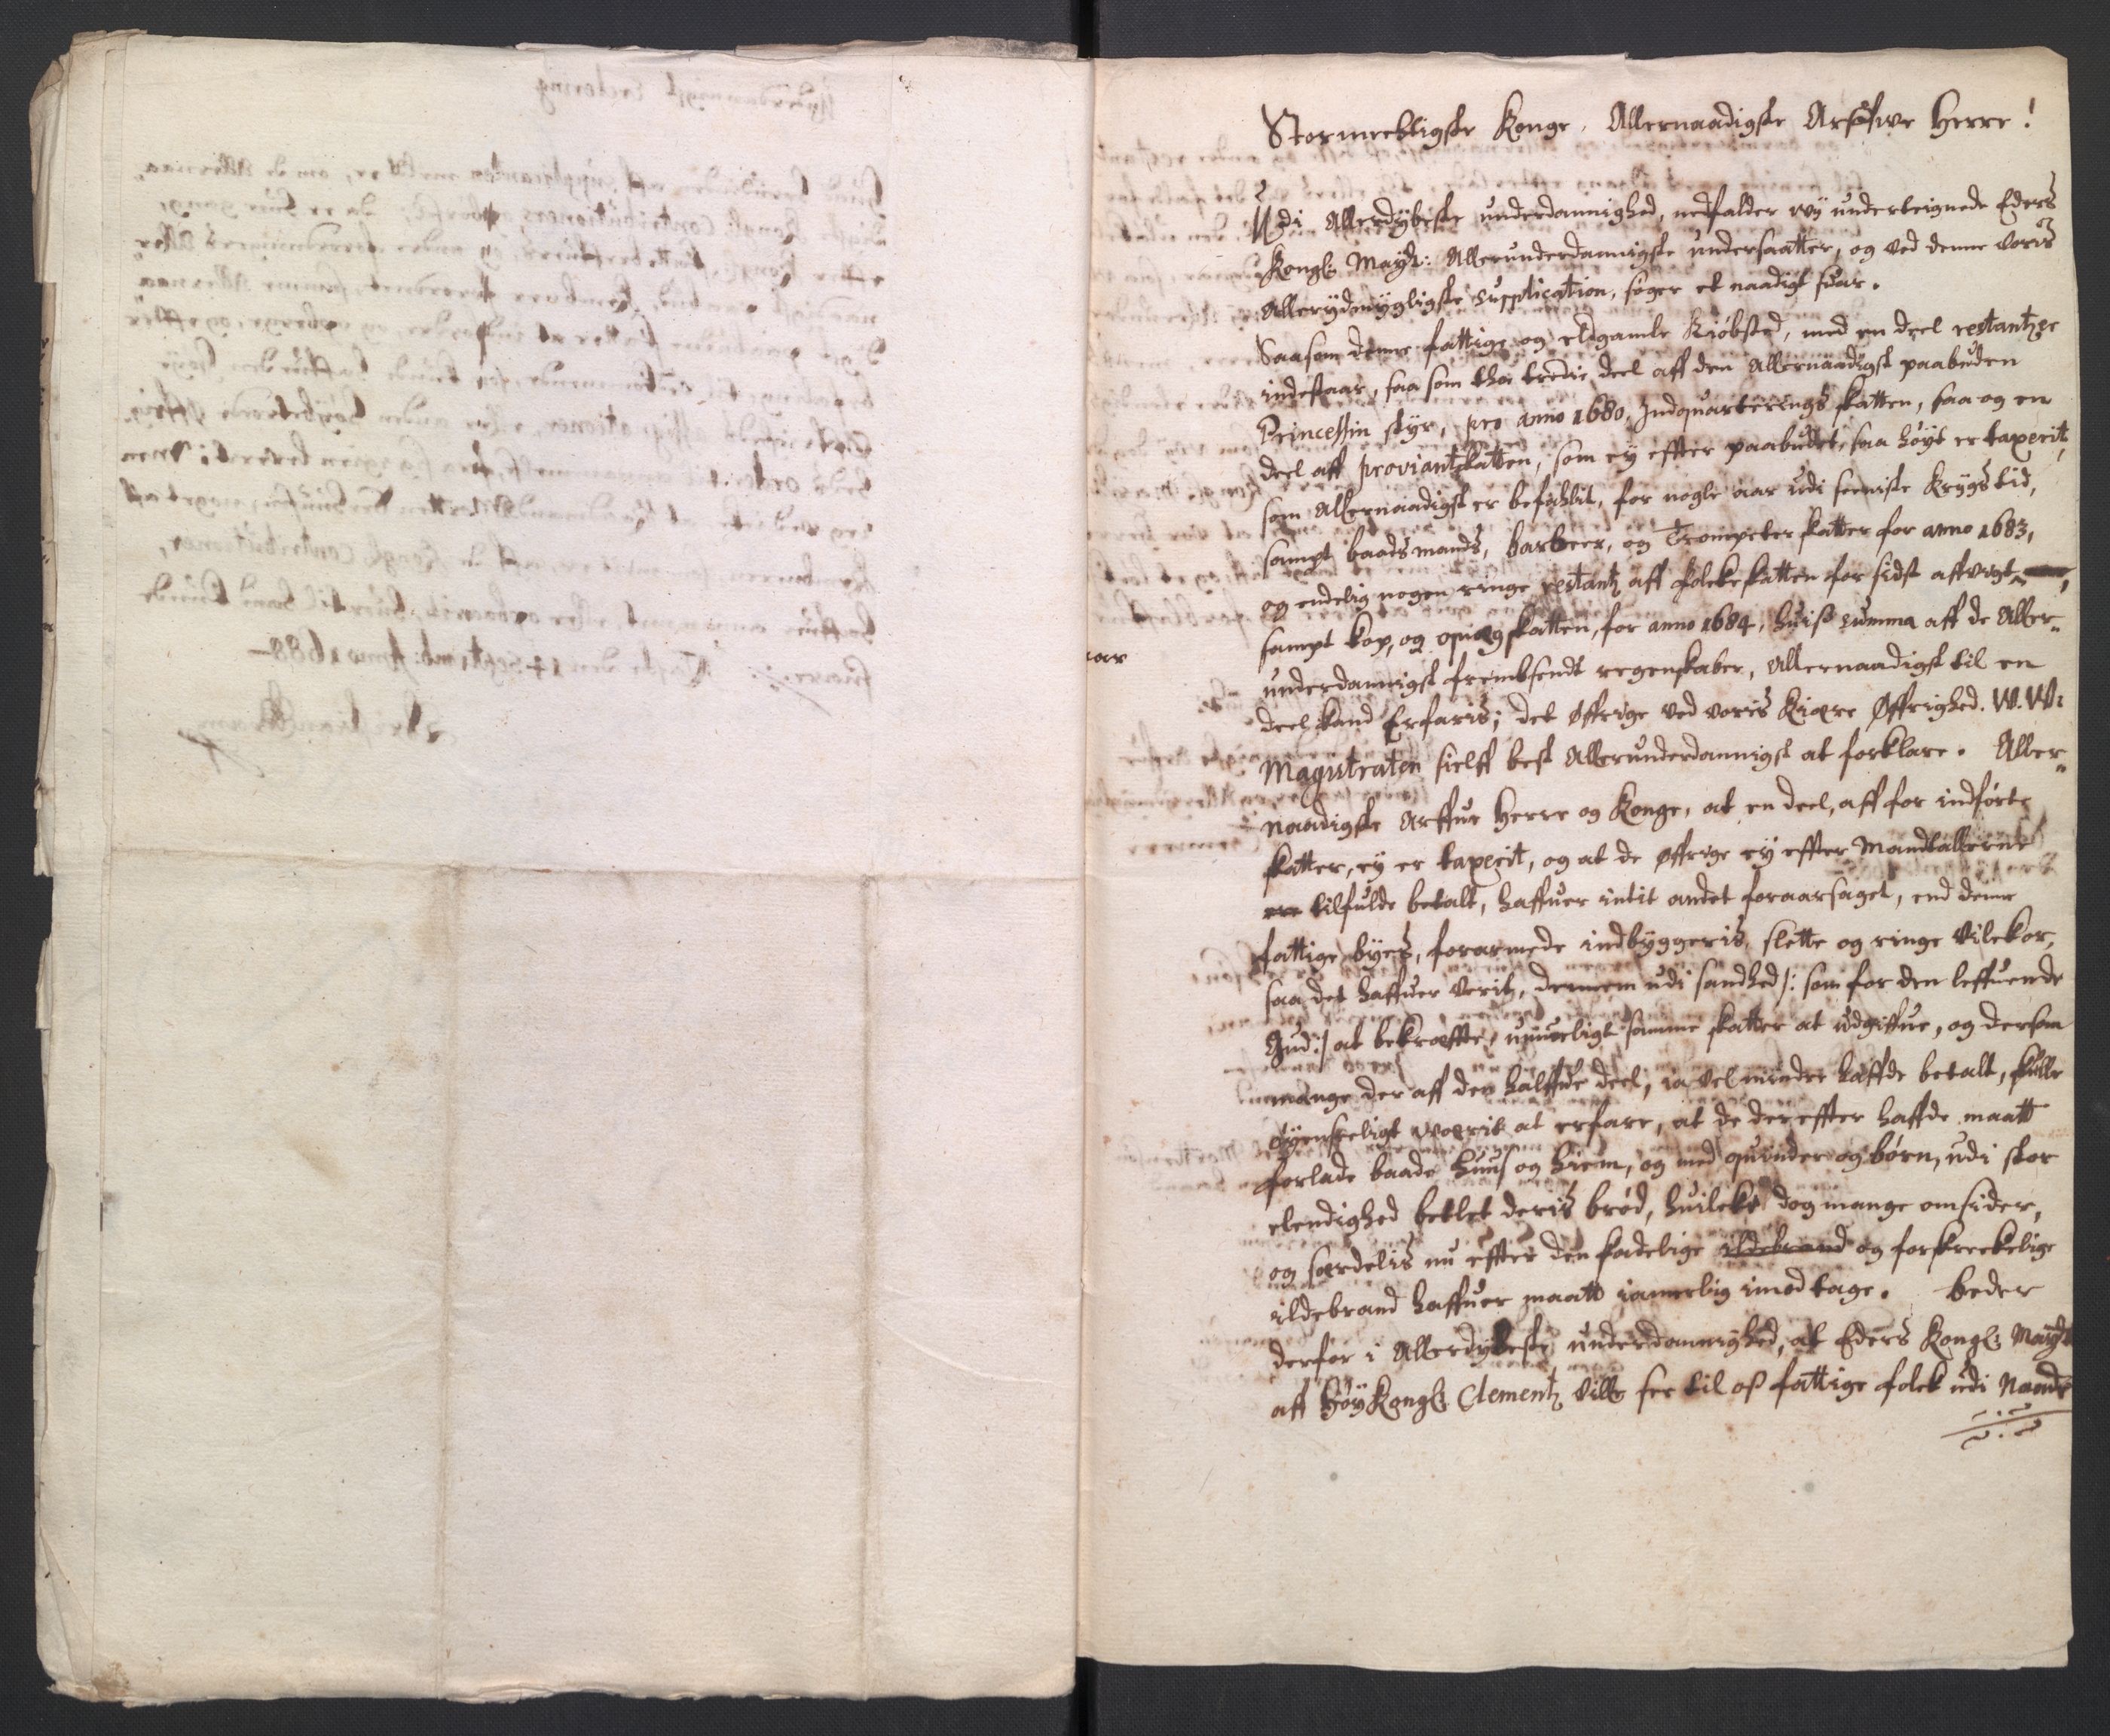 Stormechtigste Konge, Allernaadigste Arffue Herre!
Udi Allerdybeste underdannighed, nedfalder wy underteignede Eders
Kongl: Mayt: Allerunderdannigste undersaatter, og ved denne voris
Allerydmygligste Supplication, søger et naadigt suar.
Saasom denne fattige og eldgamle Kiøbsted, med en deel restantzer
indestaar, saa som tho tredie deel aff den Allernaadigst paabuden
Princessin styr, pro anno 1680, Indqvarterings skatten, saa og en
deel aff proviantskatten, som ey effter paabudet, saa høyt er taxerit,
som Allernaadigst er befahlit, for nogle aar udi seeniste Krygs tid,
sampt baadsmands, barbeer, og Trompeter skatter for anno 1683,
og endelig nogen ringe restantz aff folckeskatten for sidst affvigt
aar
sampt kop, og qvægskatten, for anno 1684, huis summa aff de Aller-
underdannigst frembsendt regenskaber, Allernaadigst til en
deel kand Erfaris; det øffrige ved voris Kiære Øffrighed. W. W:
Magistraten sielff best Allerunderdannigst at forklare. Aller-
naadigste Arffue Herre og Konge, at en deel, aff for indførte
skatter, ey er taxerit, og at de øffrige ey effter Mandtallerne
ere tilfulde betalt, haffuer intit andet foraarsaget, end denne
fattige byes, forarmede indbyggeris, slette og ringe vilckor,
saa det haffuer verit, dennem udi sandhed /: som for den leffuende
Gud :/ at bekræffte, umueligt samme skatter at udgiffue, og dersom
mange der aff den halffue deel, ia vel mindre haffde betalt, skulle
øyenseeligt wærit at erfare, at de der effter haffde maatt
forlade baade huus og hiem, og med quinder og børn, udi stor
elendighed betlet deris brød, huilcket dog mange omsider,
og særdelis nu effter den skadelige ildebrand og forskreckelige
ildebrand haffuer maatt iamerlig imodtage. beder
derfor i Allerdybeste underdannighed, at Eders Kongl: Mayt
aff Høy Kongl: Clementz ville see til oss fattige folck udi Naade